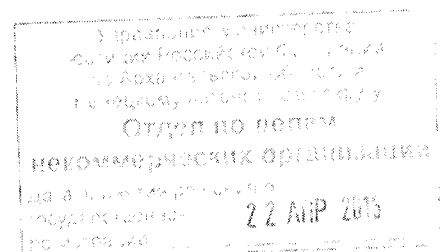 Управление Министерства
юстиции Российской Федерации
по Архангельской области и
Ненецкому автономному округу
Отдел по делам
некоммерческих организаций
государственной
22 АПР 2015